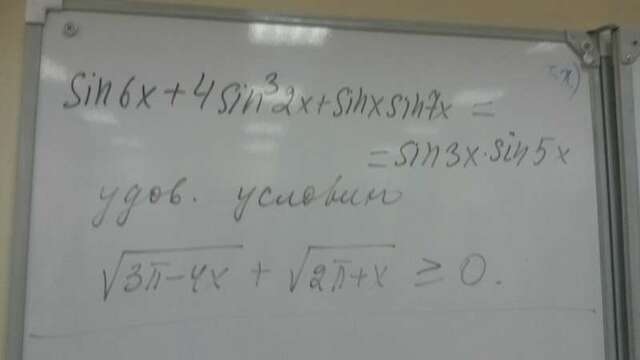 sin6x+4sin³2x+sinx sin7x =
= sin3x·sin5x
удов. условию
√3π-4x + √2π+x ≥ 0.